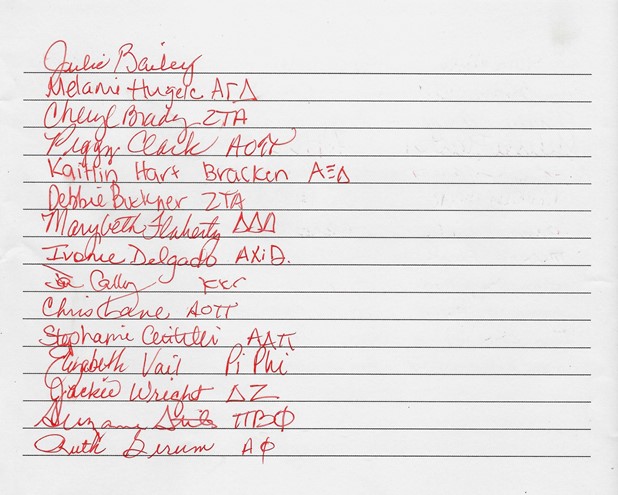 Julie Bailey
Melanie ΑΓΔ
Cheryl Brady ZTA
Peggy Clark ΑΟΠ
Kaitlin Hart Bracken ΑΞΔ
Debbie Buckner ZTA
Marybeth Flaherty ΔΔΔ
Ivonie Delgado AXiΔ.
KKΓ
Chris Lane ΑΟΠ
Stephanie ΑΔΠ
Elizabeth Vail Pi Phi
Jackie Wright ΔΖ
Suzanne ΠΒΦ
Ruth ΑΦ